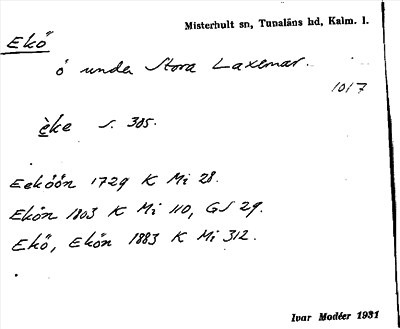 Misterhult sn, Tunaläns hd, Kalm. l.
Ekö
ö under Stora Laxemar.
1017
èke s. 305.
Eeköön 1729 K Mi 28.
Ekön 1803 K Mi 110, GS 29.
Ekö, Ekön 1883 K Mi 312.
Ivar Modéer 1931